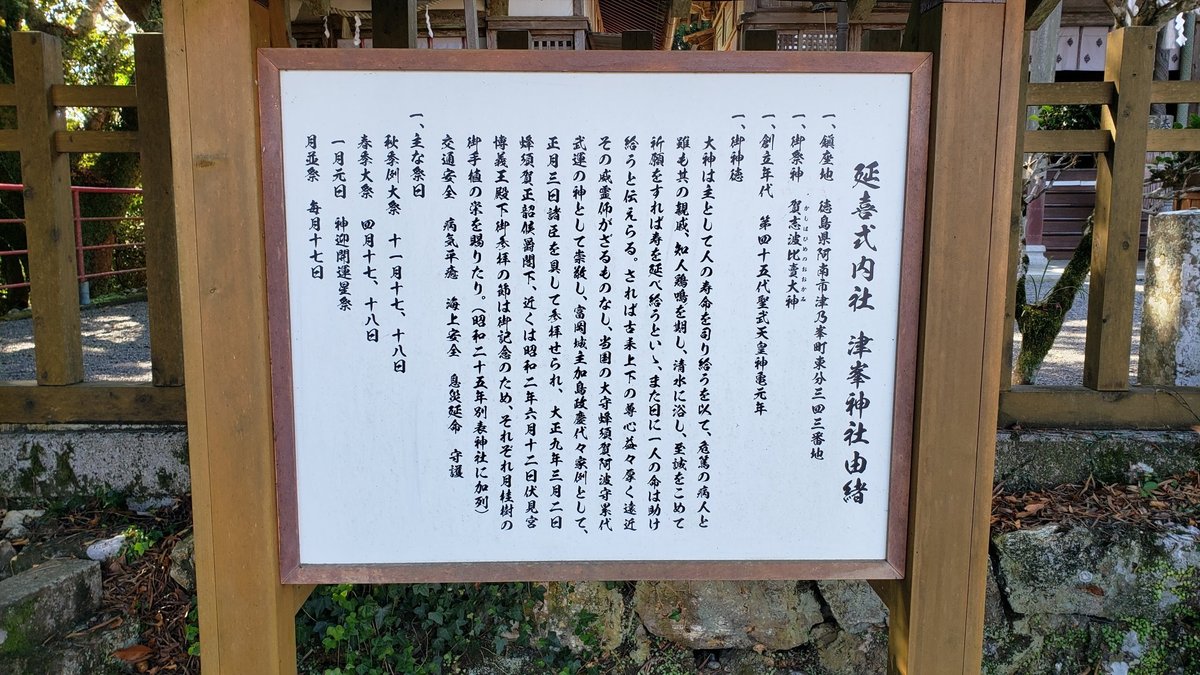 延喜式内社 津峯神社由緒
一、鎮座地 徳島県阿南市津乃峰町東分三四三番地
一、御祭神 賀志波比賣大神
かしはひめのおおかみ
一、創立年代 第四十五代聖武天皇神亀元年
一、御神徳
大神は主として人の寿命を司り給うを以て、危篤の病人と
雖も其の親戚、知人鶏鳴を期し、清水に浴し、至誠をこめて
祈願をすれば寿を延べ給うという、また日に一人の命は助け
給うと伝えらる。されば古来上下の尊心益々厚く遠近
その威霊怖がざるものなし、当国の大守蜂須賀阿波守累代
武運の神として崇敬し、富岡城主加島政慶代々家例として、
正月三日諸臣を具して参拝せられ、大正九年三月二日
蜂須賀正韶侯爵閣下、近くは昭和二年六月十二日伏見宮
博義王殿下御参拝の節は御記念のため、それぞれ月桂樹の
御手植の栄を賜りたり。(昭和二十五年別表神社に加列)
交通安全 病気平癒 海上安全 息災延命 守護
一、主な祭日
秋季例大祭 十一月十七、十八日
春季大祭 四月十七、十八日
一月元日 神迎開運星祭
月並祭 毎月十七日